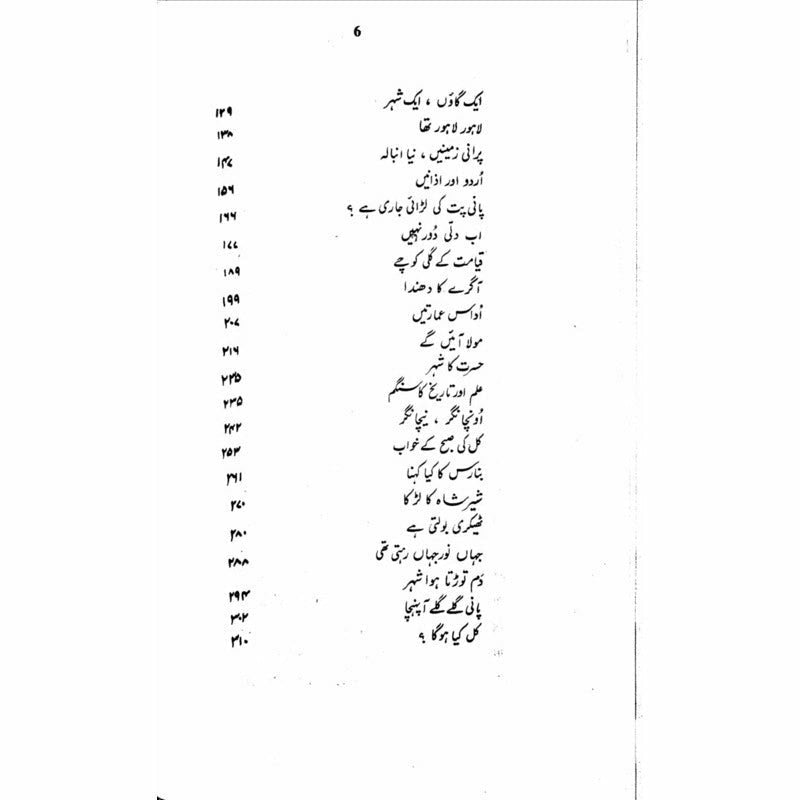 6
ایک گاؤں ، ایک شہر ۱۲۹
لاہور لاہور تھا ۱۳۸
پرانی زمینیں ، نیا انبالہ ۱۴۷
اُردو اور اذانیں ۱۵۶
پانی پت کی لڑائی جاری ہے ؟ ۱۶۶
اب دلّی دُور نہیں ۱۷۷
قیامت کے گلی کوچے ۱۸۹
آگرے کا دھندا ۱۹۹
اُداس عمارتیں ۲۰۷
مولا آئیں گے ۲۱۶
حسرت کا شہر ۲۲۵
علم اور تاریخ کا سنگم ۲۳۵
اُونچا نگر ، نیچا نگر ۲۴۲
کل کی صبح کے خواب ۲۵۳
بنارس کا کیا کہنا ۲۶۱
شیر شاہ کا لڑکا ۲۷۰
ٹھیکری بولتی ہے ۲۸۰
جہاں نورجہاں رہتی تھی ۲۸۸
دَم توڑتا ہوا شہر ۲۹۴
پانی گلے گلے آ پہنچا ۳۰۲
کل کیا ہوگا ؟ ۳۱۰